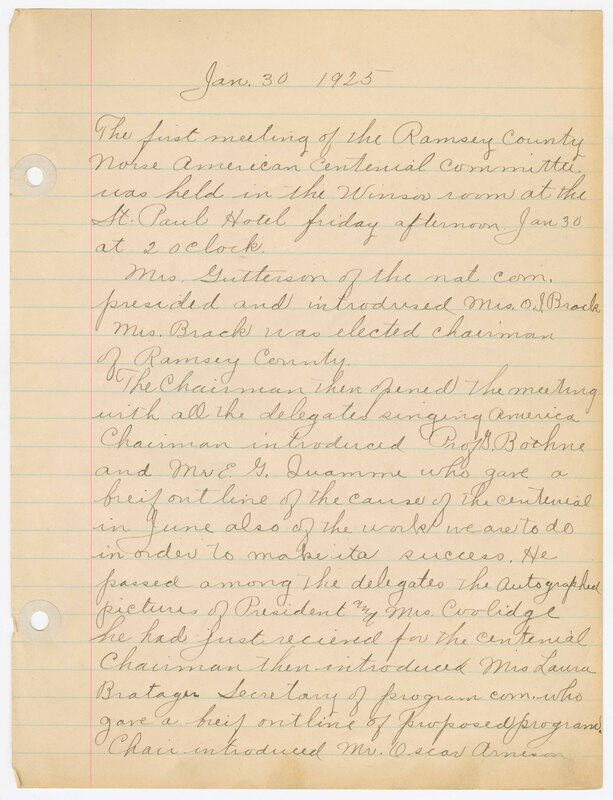 Jan. 30 1925
The first meeting of the Ramsey County
Norse American Centenial Committee
was held in the Winsor room at the
St. Paul Hotel friday afternoon Jan 30
at 2 o clock.
Mrs. Gutterson of the nat com.
presided and introdused Mrs. O.J. Brack
Mrs. Brack was elected chairman
of Ramsey County.
The Chairman then opened the meeting
with all the delegates singing America
Chairman introduced Prof G. Bothne
and Mr E. G. Quamme who gave a
breif out line of the cause of the centenial
in June also of the work we are to do
in order to make it a success. He
passed among the delegates the autographed
pictures of President and Mrs Coolidge
he had just recieved for the centenial
Chairman then introduced Mrs Laura
Bratager Secretary of program com. who
gave a breif outline of proposed program.
Chair introduced Mr. Oscar Arneson